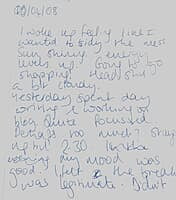 09/04/08
I woke up feeling like I
wanted to the
sun shining energy
levels up. Going to go
shopping. Head still
a bit cloudy.
Yesterday spent day
writing & working on
blog. Quite focussed
Perhaps too much? Stay
up till 2.30
my mood was
good. I felt the break
was legitimate. Didn't